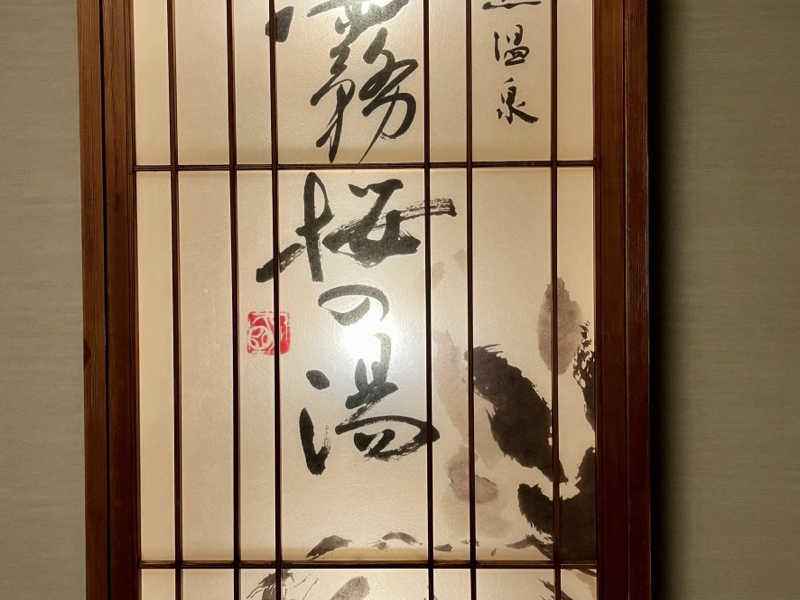 温泉
霧桜の湯